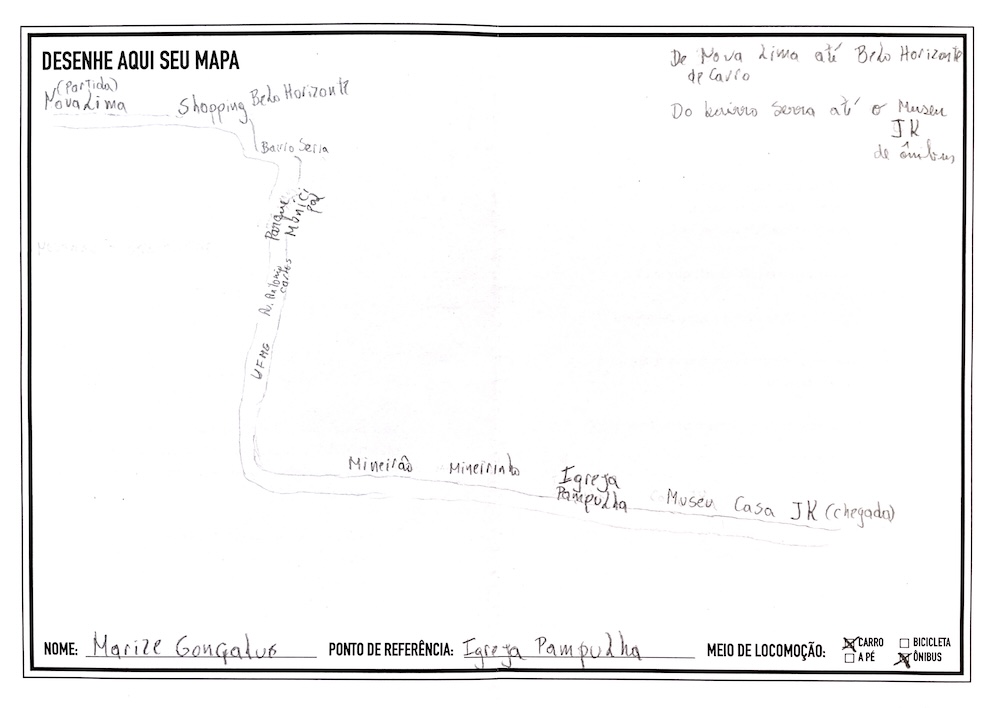 DESENHE AQUI SEU MAPA
De Nova Lima até Belo Horizonte
de Carro
Do bairro Serra até o Museu
JK
de ônibus
(Partida)
Nova Lima
Shopping Belo Horizonte
Barrio Serra
Parque
Munici
pal
Av. Antonio
carlos
UFMG
Mineirão Mineirinho Igreja
Pampulha
Museu Casa JK (chegada)
NOME: Marize Gonçalves PONTO DE REFERÊNCIA: Igreja Pampulha MEIO DE LOCOMOÇÃO: CARRO BICICLETA
A PÉ ÔNIBUS